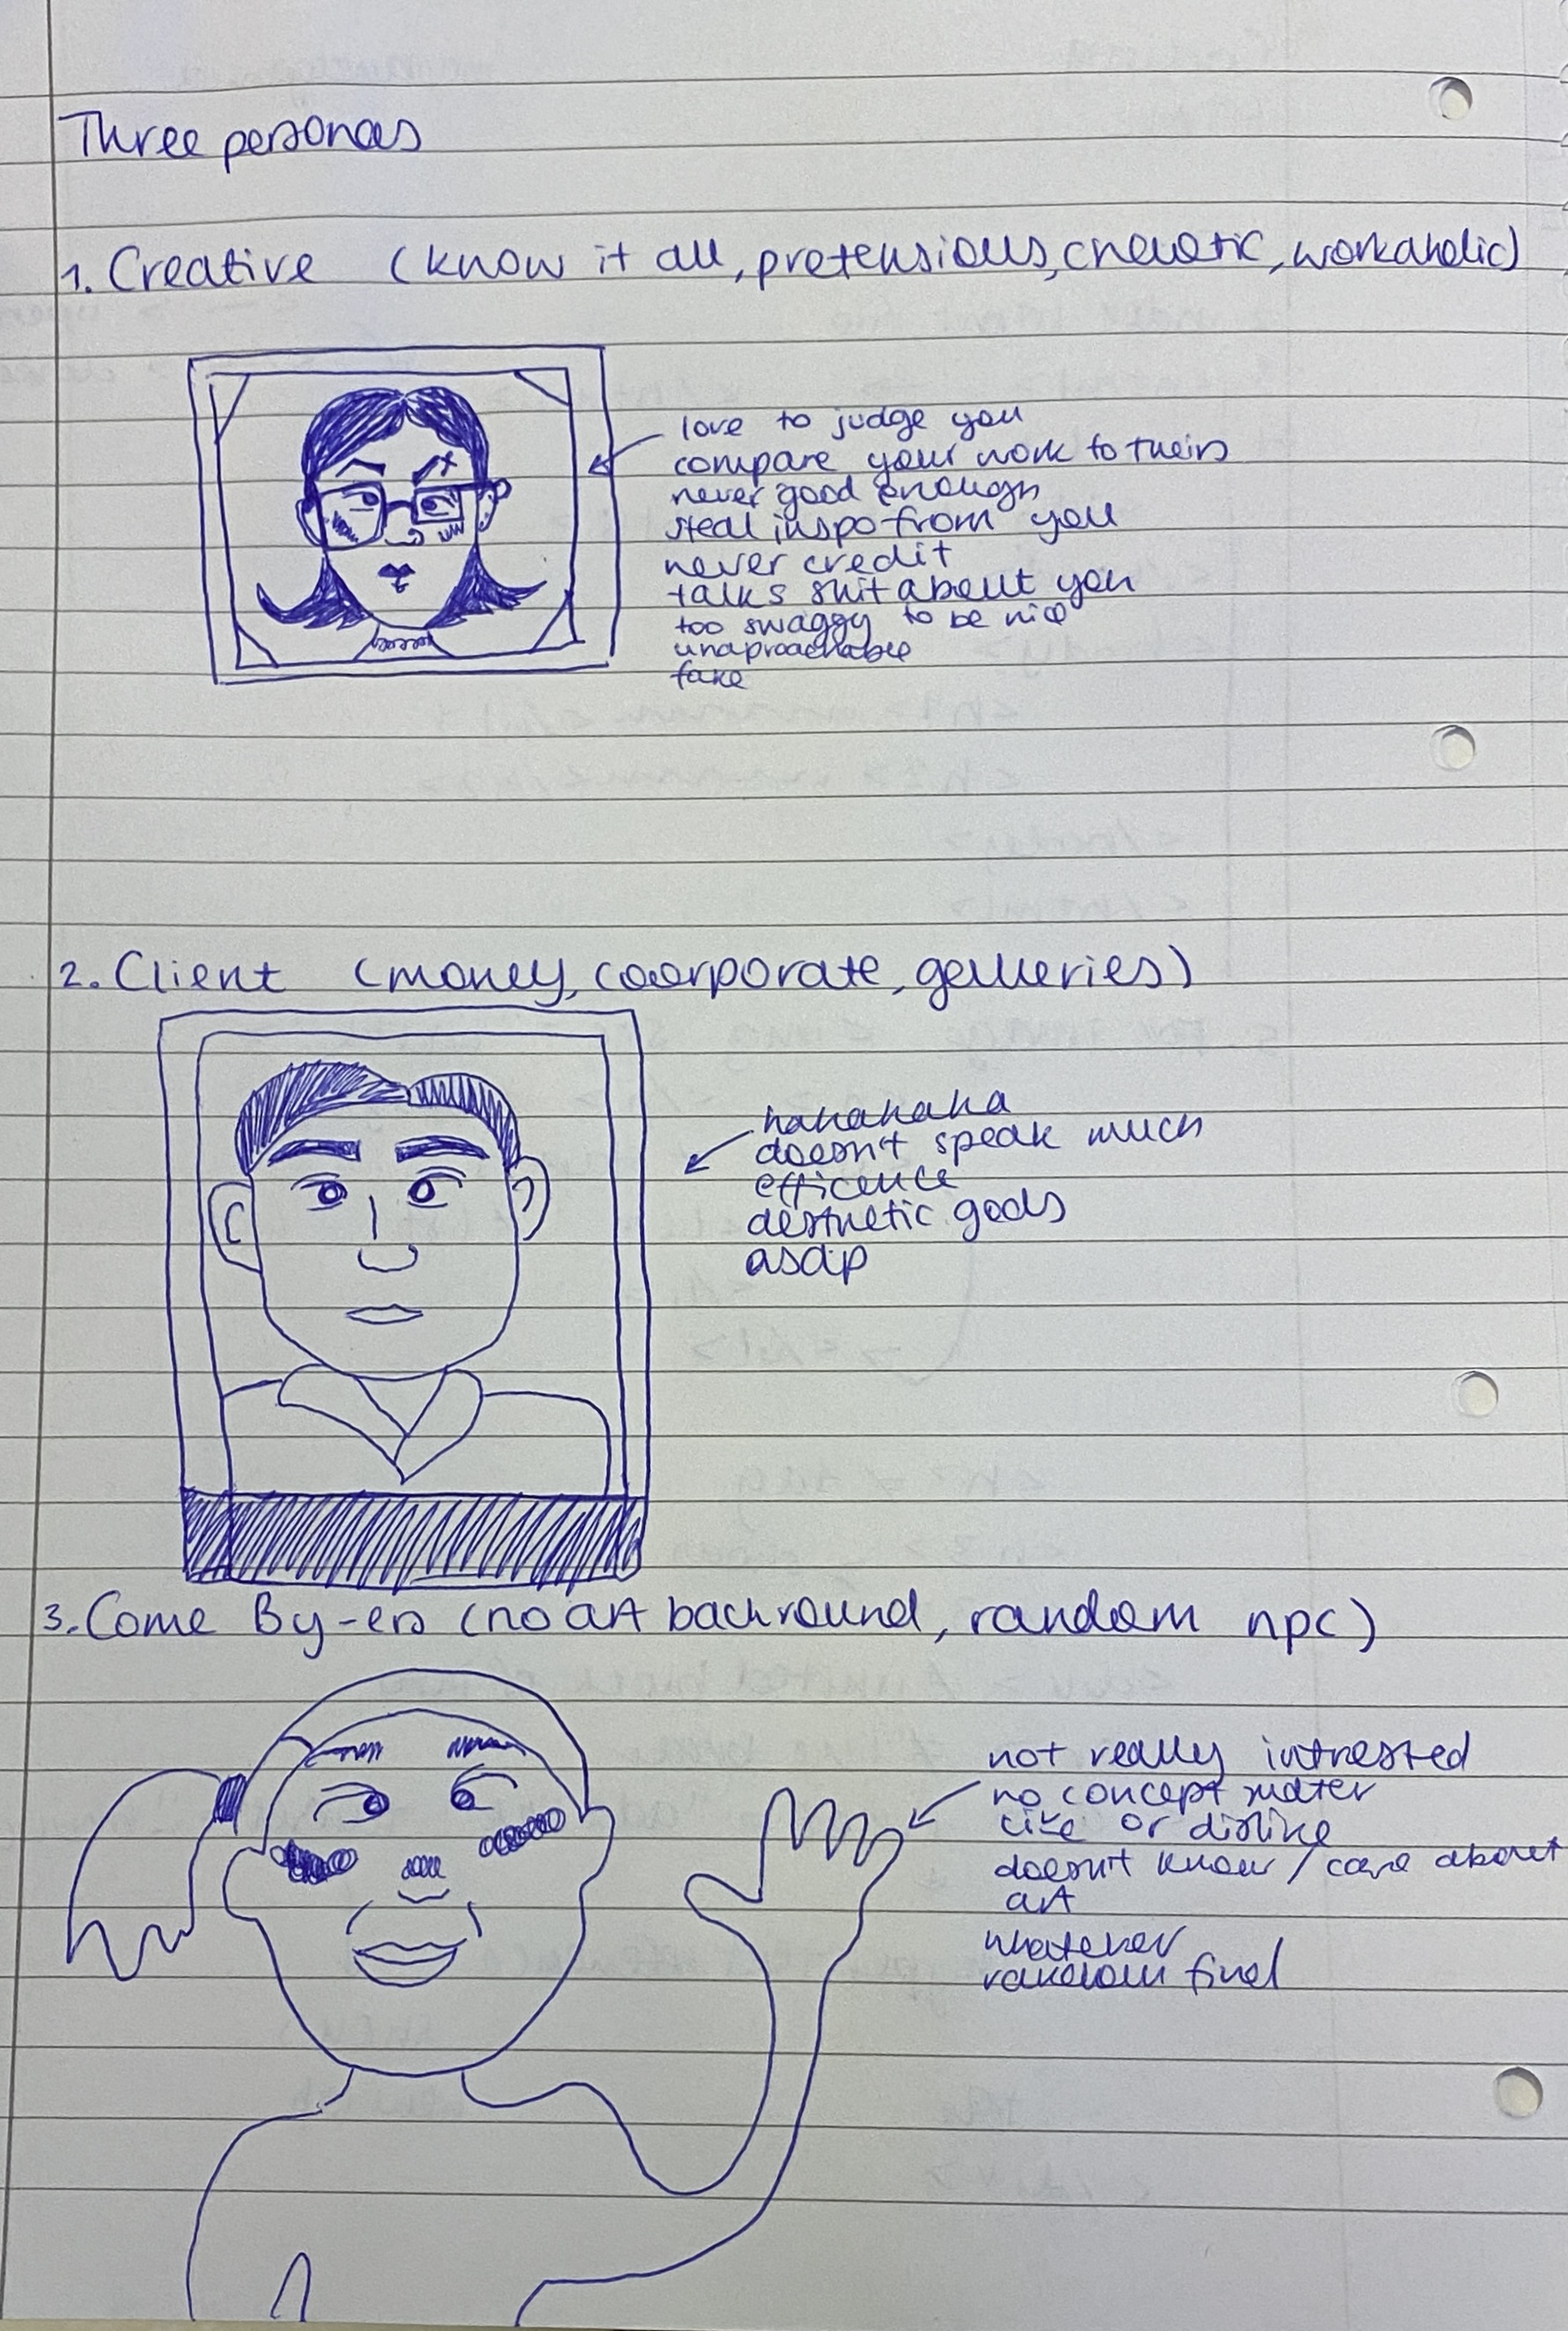 Three personas
1. Creative (know it all, pretensious, chaotic, workaholic)
love to judge you
compare your work to theirs
never good enough
steal inspo from you
never credit
talks shit about you
too swaggy to be nice
unaproachable
fake
2. Client (money, coorporate, galleries)
hahahaha
doesn't speak much
efficence
aesthetic gods
asap
3. Come By-ers (no art bachround, random npc)
not really intrested
no concept mater
like or dislike
doesn't know / care about
art
whatever
random find